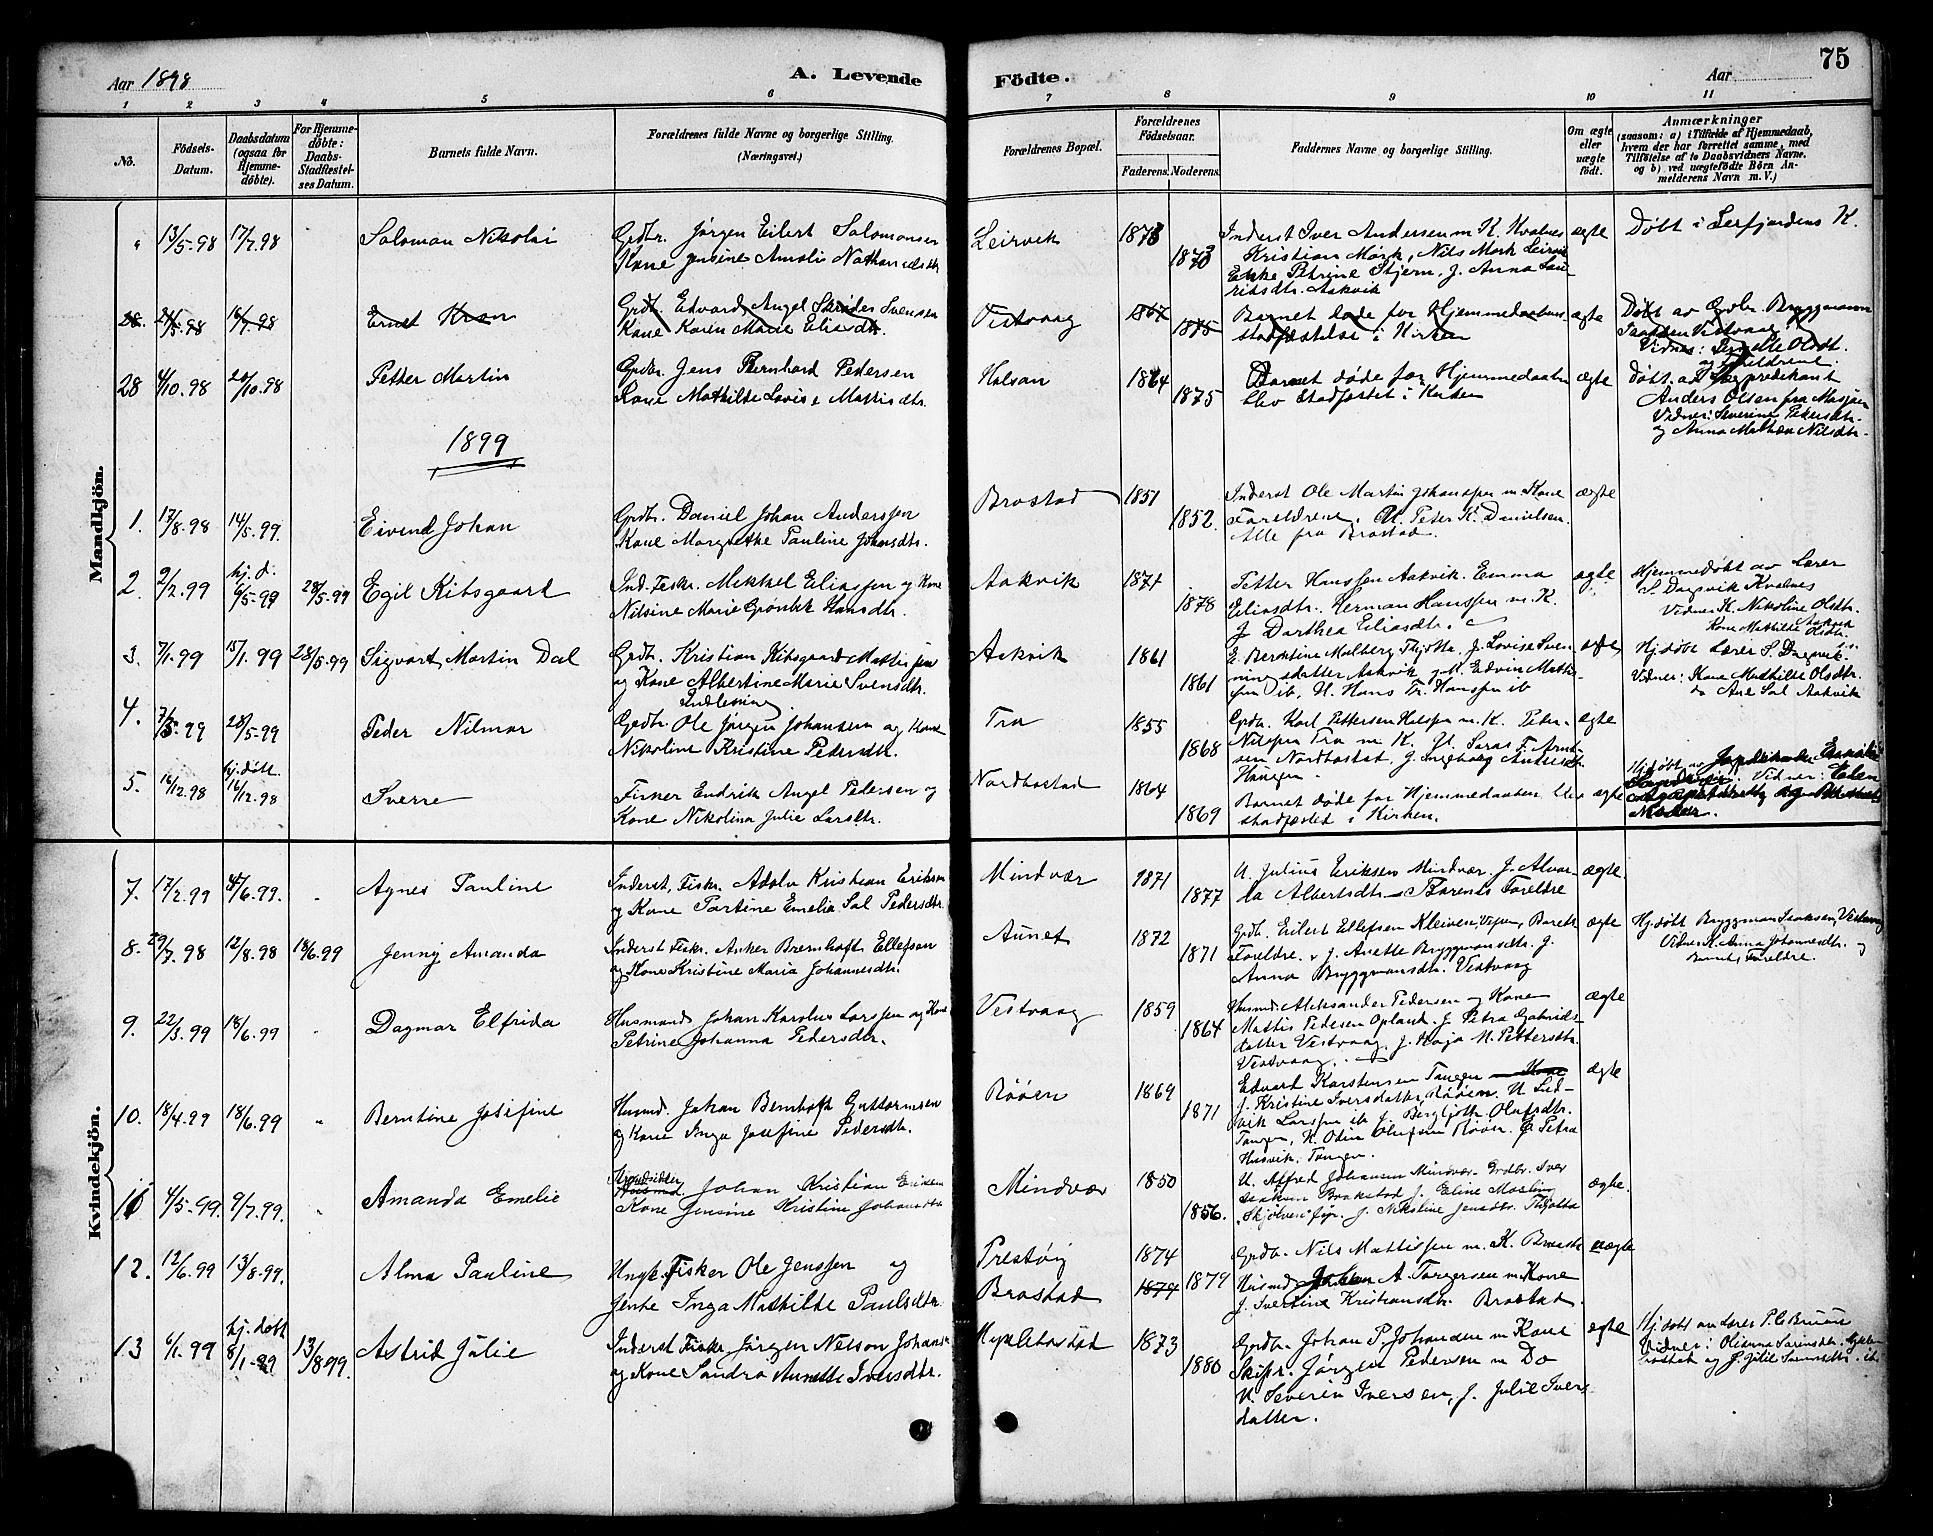 Aar 1898
A. Levende Födte.
Aar
75
1 2 3 4 5 6 7 8 9 10 11
No.
Födsels-Datum.
Daabsdatum (ogsaa for Hjemme-döbte).
For Hjemme-döbte: Daabs-Stadfæstel-ses Datum.
Barnets fulde Navn.
Forældrenes fulde Navne og borgerlige Stilling.
(Næringsvei.)
Forældrenes Bopæl.
Forældrenes Födselsaar.
Faderens. Moderens.
Faddernes Navne og borgerlige Stilling.
Om ægte eller uægte født.
Anmærkninger
(saasom: a) i Tilfælde af Hjemmedaab, hvem der har forrettet samme, med Tilføielse af to Daabsvidners Navne. og b) ved uægtefödte Börn An-melderens Navn m. V.)
Mandkjön.
" 13/5.98 17/7.98 Salomon Nikolai
Grdbr. Jørgen Eilert Salomonsen
Kone Jensine Amalie Nathanielsdtr
Leirvik 1873 1873
Inderst Iver Andersen m K. Kvalnes
Kristian Mørk, Nils Mørk Leirvik
Enke Petrine Stjern, J. Anna Lau-
ritsdtr. Aakvik
ægte
Døbt i Lerfjordens K.
28. 24/5.98 16/7.98 Ernst Kron
Grdbr. Edvard Angel Svensen
Kone Karen Marie Eliasdtr.
Vistvaag 1867 1875
Barnet døde før Hjemmedaabens
stadfæstelse i Kirken
ægte
Døbt av Grdbr. Bryggmann
Isaksen Vistvaag
Vidnes: Olsdt.
og Forældrene.
28 4/10.98 20/10.98 Petter Martin
Grdbr. Jens Bernhard Pedersen
Kone Mathilde Lovise Mattisdtr.
Halsan 1864 1875
Barnet døde før Hjemmedaaben
blev stadfæstet i Kirken
ægte
døbt. av Lægpredikant
Anders Olsen fra Mosjøen
Vidner: Severine Pedersdtr.
og Anna Mathea Nilsdtr.
1899
1. 17/8.98 14/5.99. Eivind Johan
Grdbr. Daniel Johan Anderssen
Kone Margrethe Pauline Johansdtr.
Brastad 1851 1852.
Inderst Ole Martin Johanssen m Kone
Forældrene. U. Peter K. Danielsen.
Alle fra Brastad.
ægte
2. 9/2.99 hj. d. 6/5.99 28/5.99 Egil Kibsgaard
Ind. Fiskr. Mikkel Eliassen og Kone
Nilsine Marie Grønbek Hansdtr.
Aakvik 1871 1878
Petter Hanssen Aakvik. Emma
Eliasdtr. Herman Hanssen m. K.
J Dorthea Eliasdtr.
ægte
Hjemmedøbt av Lærer
S. Dagsvik Kvalnes
Vidner K. Nikoline Olsdtr.
Kone Mathilde Olsdtr. Aakvik
3. 7/1.99 15/1.99 28/5.99 Sigvart Martin Dal
Grdbr. Kristian Kibsgaard Mattissen
og Kone Albertine Marie Svensdtr.
Aakvik 1861 1861
E. Berntine Malberg Thjøtta, J. Lovise Sven
ningsdatter Aakvik, gm. Edvin Matti-
sen ib, U. Hans Fr. Hanssen ib
ægte
Hj. døbt Lærer S. Dagsvik.
Vidner: Kone Mathilde Olsdtr.
do Ane Sal Aakvik
4. 7/3.99 28/5.99 Peder Nilmar
Indlesning
Grdbr. Ole Jørgen Johansen og Kone
Nikoline Kristine Pedersdtr.
Tra 1855 1868
Grdbr. Karl Pettersen Halsen m. K. Peter
Nilssen Tra m K. J. Ingeborg Andersdt
Haugen.
ægte
5. 16/12.98 hj. døbt. 16/12.98 Sverre
Fisker Endrik Angel Pedersen og
Kone Nikolina Julie Larsdtr.
Nordbostad 1864 1869
Barnet døde før Hjemmedaaben blev
stadfæstet i Kirken.
ægte
Hj. døbt av
Vidner:
Kvindekjön.
7. 17/2.99 4/6.99. " Agnes Pauline
Inderst, Fiskr. Adolv Kristian Eriksen
og Kone Partine Emelia Sal Pedersdtr.
Mindvær 1871 1877
U. Julius Eriksen Mindvær. J. Alvar-
da Albertsdtr. Barnets Forældre
ægte.
8. 29/7.98 12/8.98 18/6.99 Jenny Amanda
Inderst Fiskr. Anker Bernhoft Ellefsen
og Kone Kristine Maria Johannesdtr.
Aunet 1872 1871
Grdb. Eilert Ellefsen Kleiven, Barnets
Forældre. J. Anette Bryggmansdtr. J.
Anna Bryggmansdtr. Vistvaag
ægte
Hj. døbt Bryggman Isaksen, Vistvaag
Vidner K. Anna Johannesdtr. og
Barnets Forældre.
9. 22/3.99 18/6.99 " Dagmar Elfrida
Husmand Johan Karolus Larssen og Kone
Petrine Johanna Pedersdtr.
Vestvaag 1859 1864
Husmd. Aleksander Pedersen og Kone
Mattis Pedersen Opland. J Petra Gabriels-
datter Vestvaag. J. Kaja M. Pettersdtr.
Vestvaag.
ægte
10. 18/4.99 18/6.99 " Berntine Josefine
Husmd. Johan Bernhoft Guttormsen
og Kone Inga Josefine Pedersdtr.
Røøen 1869 1871
Edvart Karstensen Tangen Kone
J. Kristine Iversdatter Røøen. U Lud-
vik Larssen ib J. Bergljoth Olufsdtr.
Tangen, U. Odin Olufsen Røøen. P. Petra
Husvik. Tangen.
ægte
11 4/5.99. 9/7.99. " Amanda Emelie
Strandsidder Johan Kristian Eriksen
Kone Jensine Kristine Johansdtr
Mindvær 1850 1856.
U. Alfred Johansen Mindvær. Grdbr. Iver
Isaksen Brakstad J. Eline
"Skjølven" J. Nikoline Jensdtr. Thjøtta
ægte.
12. 12/6.99 13/8.99. Alma Pauline
Ungk. Fisker Ole Jenssen og
Jente Inga Mathilde Paulsdtr.
Prestøy
Brastad 1874 1879 1879
Grdb. Nils Mattissen m. K. Brastd
Husmd. Johan A. Torgersen m. Kone
J. Ivertine Kristiansdtr. Brastad.
uægte
13 6/1.99 hj. døbt 8/1-99 13/8.99. Astrid Julie
Inderst Fiskr. Jørgen Nelson Johans
og Kone Sandra Anette Iversdtr.
Myklebostad 1873 1880
Grdbr. Johan P. Johansen m Kone
Skipr. Jørgen Pedersen m Do
U. Severin Iversen, J. Julie Ivers-
datter.
ægte
Hj. døbt av Lærer P. C. Bruun
Vidner: Olianna Sørensdtr. Mykle-
bostad og J. Julie Svensdtr. ib